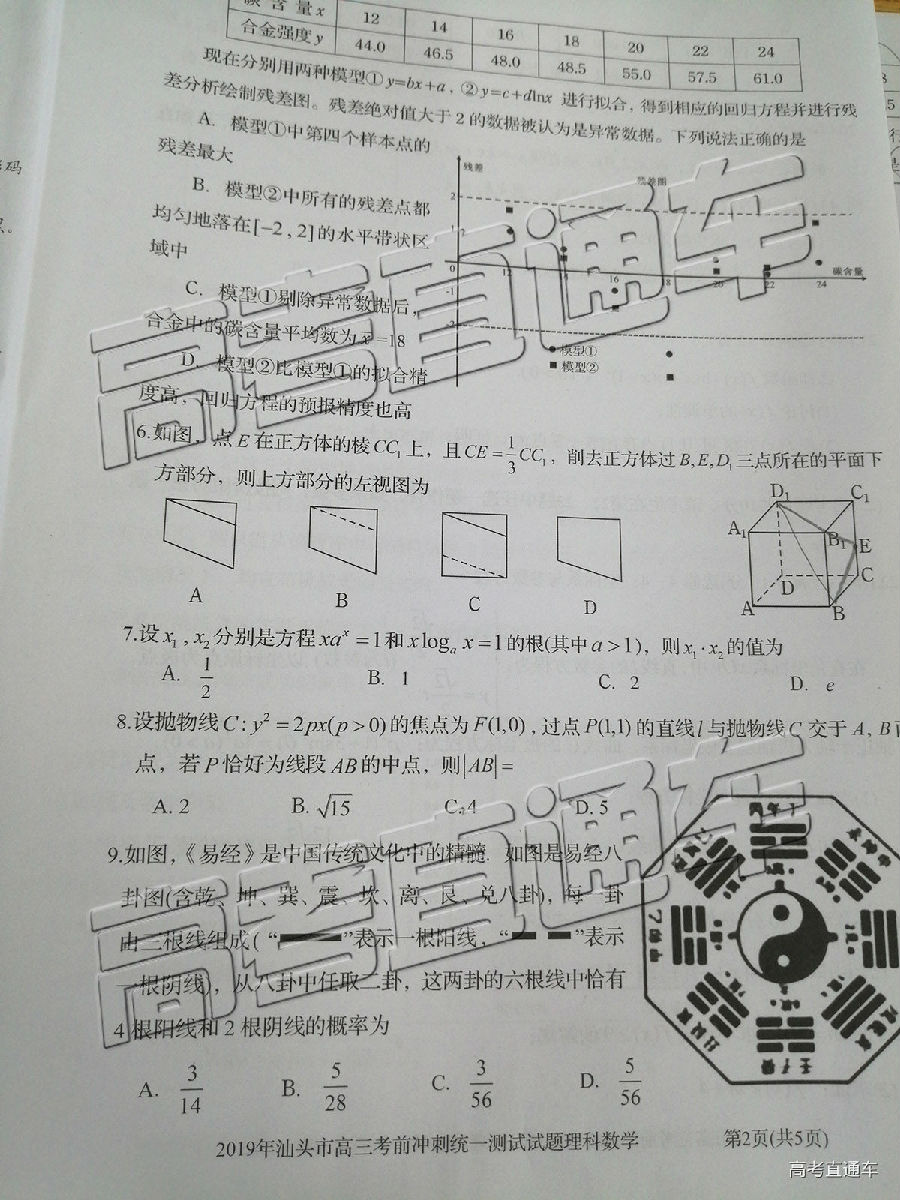 碳含量x 12 14 16 18 20 22 24
合金强度y 44.0 46.5 48.0 48.5 55.0 57.5 61.0
现在分别用两种模型① y=bx+a，② y=c+dlnx 进行拟合，得到相应的回归方程并进行残
差分析绘制残差图。残差绝对值大于 2 的数据被认为是异常数据。下列说法正确的是
A．模型①中第四个样本点的
残差最大
B．模型②中所有的残差点都
均匀地落在[−2，2]的水平带状区
域中
C．模型①剔除异常数据后，
合金中的碳含量平均数为 x̄=18
D．模型②比模型①的拟合精
度高，回归方程的预报精度也高
残差
残差图
2
0
-1
16
18
20
22
24
碳含量
模型①
模型②
6.如图，点 E 在正方体的棱 CC₁ 上，且 CE=1/3 CC₁，削去正方体过 B,E,D₁ 三点所在的平面下
方部分，则上方部分的左视图为
A B C D
D₁ C₁
A₁ B₁ E
D C
A B
7.设 x₁，x₂ 分别是方程 xaˣ=1 和 x logₐ x=1 的根(其中 a>1)，则 x₁·x₂ 的值为
A. 1/2 B. 1 C. 2 D. e
8.设抛物线 C: y²=2px(p>0) 的焦点为 F(1,0)，过点 P(1,1) 的直线 l 与抛物线 C 交于 A, B
点，若 P 恰好为线段 AB 的中点，则|AB|=
A. 2 B. √15 C. 4 D. 5
9.如图，《易经》是中国传统文化中的精髓．如图是易经八
卦图(含乾、坤、巽、震、坎、离、艮、兑八卦)，每一卦
由三根线组成( “▬▬”表示一根阳线，“▬ ▬”表示
一根阴线)，从八卦中任取二卦，这两卦的六根线中恰有
4 根阳线和 2 根阴线的概率为
A. 3/14 B. 5/28 C. 3/56 D. 5/56
2019年汕头市高三考前冲刺统一测试试题理科数学 第2页(共5页)
高考直通车
高考直通车
高考直通车